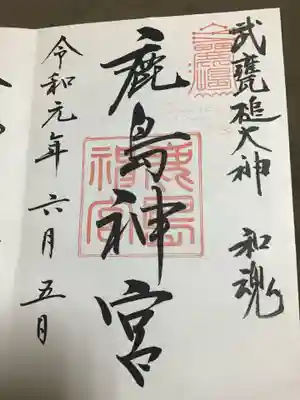 武甕槌大神　和魂
鹿島神宮
鹿島神宮
令和元年六月五日